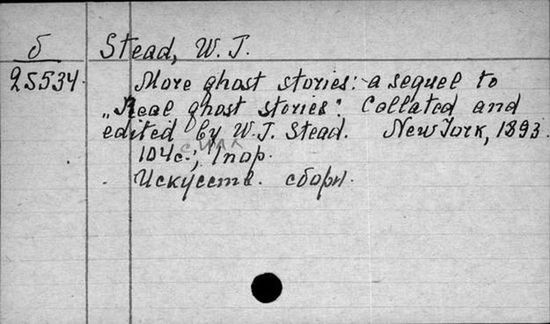 б Stead, W. T.
25534. More ghost stories: a sequel to
„Real ghost stories". Collated and
edited by W. T. Stead. New York, 1893.
104с.; 1пор.
Искусств. сборн.